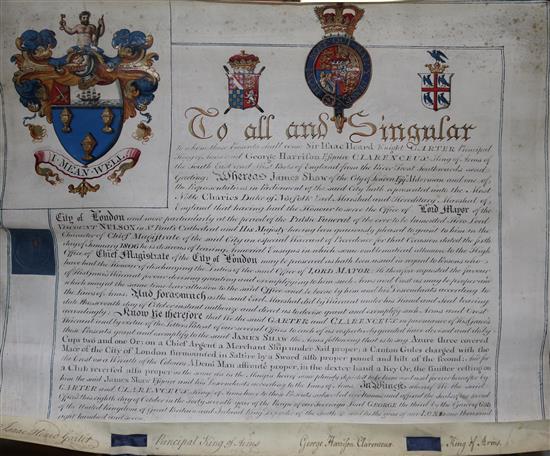 I MEAN WELL
To all and Singular
to whom these Presents shall come Sir Isaac Heard Knight GARTER Principal
King of Arms and George Harrison Esquire CLARENCEUX King of Arms of
the South East and West Parts of England from the River Trent Southwards send
Greeting: Whereas James Shaw of the City of London Esqr Alderman and one of
the Representatives in Parliament of the said City hath represented unto the Most
Noble Charles Duke of Norfolk Earl Marshal and Hereditary Marshal of
England that having had the Honour to serve the Office of Lord Mayor of the
City of London and more particularly at the period of the Public Funeral of the ever to be lamented Hero Lord
VISCOUNT NELSON in St Paul's Cathedral and His Majesty having been graciously pleased to grant to him as the
Character of Chief Magistrate of the said City an especial Warrant of Precedence for that Occasion dated the sixth
day of January 1806 he is desirous of bearing Armorial Ensigns in which some emblematical allusions to the High
Office of Chief Magistrate of the City of London may be preserved as hath been usual in regard to Persons who
have had the Honour of discharging the Duties of the said Office of LORD MAYOR
And forasmuch as the said Earl Marshal did by Warrant under his Hand and Seal bearing
date the seventh day of October
Know Ye therefore that We the said GARTER and CLARENCEUX
the said JAMES SHAW the Arms following that is to say Azure three covered
Cups two and one Or; on a Chief Argent a Merchant Ship under Sail proper; a Canton Gules charged with the
Mace of the City of London surmounted in Saltire by a Sword also proper pomel and hilt of the Second
A Demi Man affronté proper, in the dexter hand a Key Or, the sinister resting on
a Club
him the said James Shaw Esquire and his Descendants according to the Laws of Arms. In Witness whereof We the said
GARTER and CLARENCEUX Kings of Arms have to these Presents subscribed our Names and affixed the Seals of our
Offices this eighth day of October in the forty seventh year of the Reign of our Sovereign Lord GEORGE the third by the Grace of God
of the United Kingdom of Great Britain and Ireland King
eight hundred and
Isaac Heard Garter Principal King of Arms George Harrison Clarenceux King of Arms.